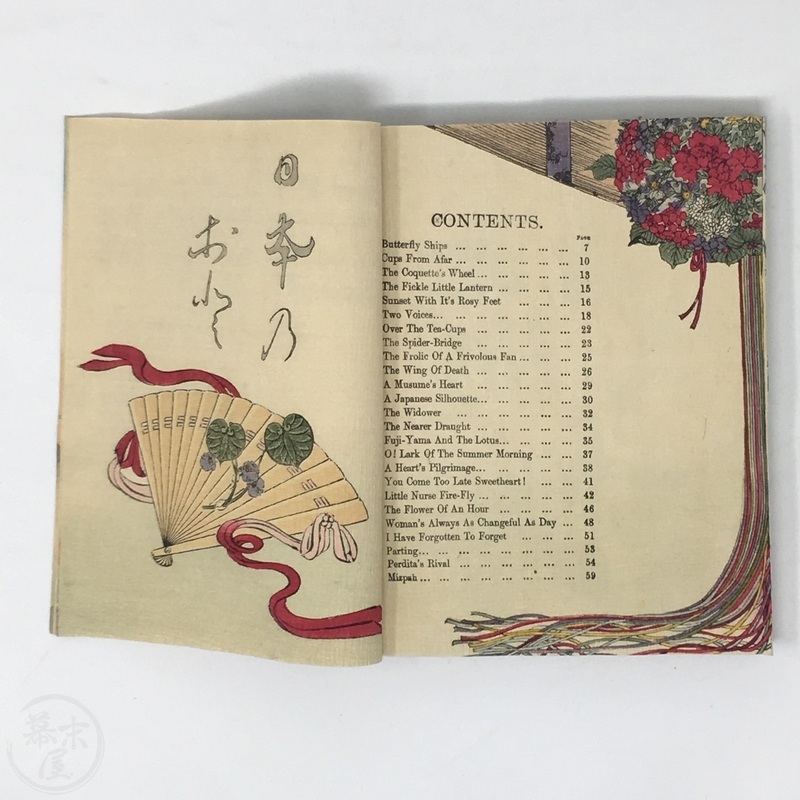 日本乃
CONTENTS.
PAGE
Butterfly Ships ... ... ... ... ... ... 7
Cups From Afar ... ... ... ... ... ... 10
The Coquette's Wheel ... ... ... ... ... 13
The Fickle Little Lantern ... ... ... ... 15
Sunset With It's Rosy Feet ... ... ... 16
Two Voices... ... ... ... ... ... ... 18
Over The Tea-Cups ... ... ... ... ... 22
The Spider-Bridge ... ... ... ... ... 23
The Frolic Of A Frivolous Fan ... ... ... 25
The Wing Of Death ... ... ... ... ... 26
A Musume's Heart ... ... ... ... ... 29
A Japanese Silhouette... ... ... ... ... 30
The Widower ... ... ... ... ... ... 32
The Nearer Draught ... ... ... ... ... 34
Fuji-Yama And The Lotus... ... ... ... 35
O! Lark Of The Summer Morning ... ... 37
A Heart's Pilgrimage... ... ... ... ... 38
You Come Too Late Sweetheart! ... ... 41
Little Nurse Fire-Fly ... ... ... ... ... 42
The Flower Of An Hour ... ... ... ... 46
Woman's Always As Changeful As Day ... 48
I Have Forgotten To Forget ... ... ... 51
Parting... ... ... ... ... ... ... ... 53
Perdita's Rival ... ... ... ... ... ... 54
Mizpah ... ... ... ... ... ... ... ... 59
幕末屋